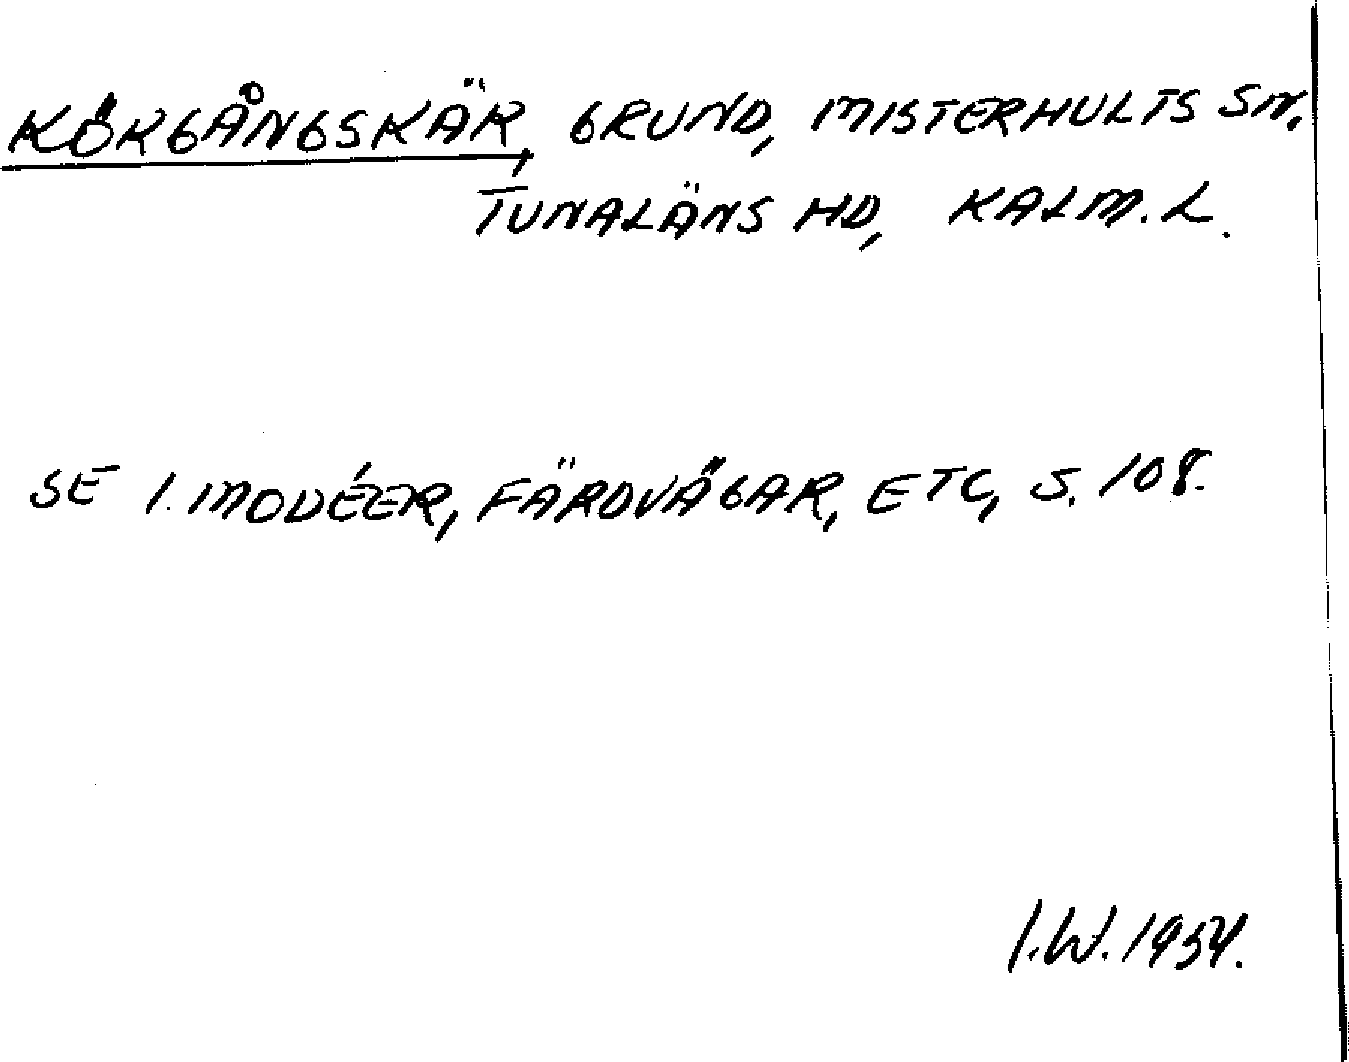 KÖRGÅNGSKÄR, GRUND, MISTERHULTS SN.
TUNALÄNS HD, KALM. L.
SE I. MODÉER, FÄRDVÄGAR, ETC, S. 108.
I.W. 1954.